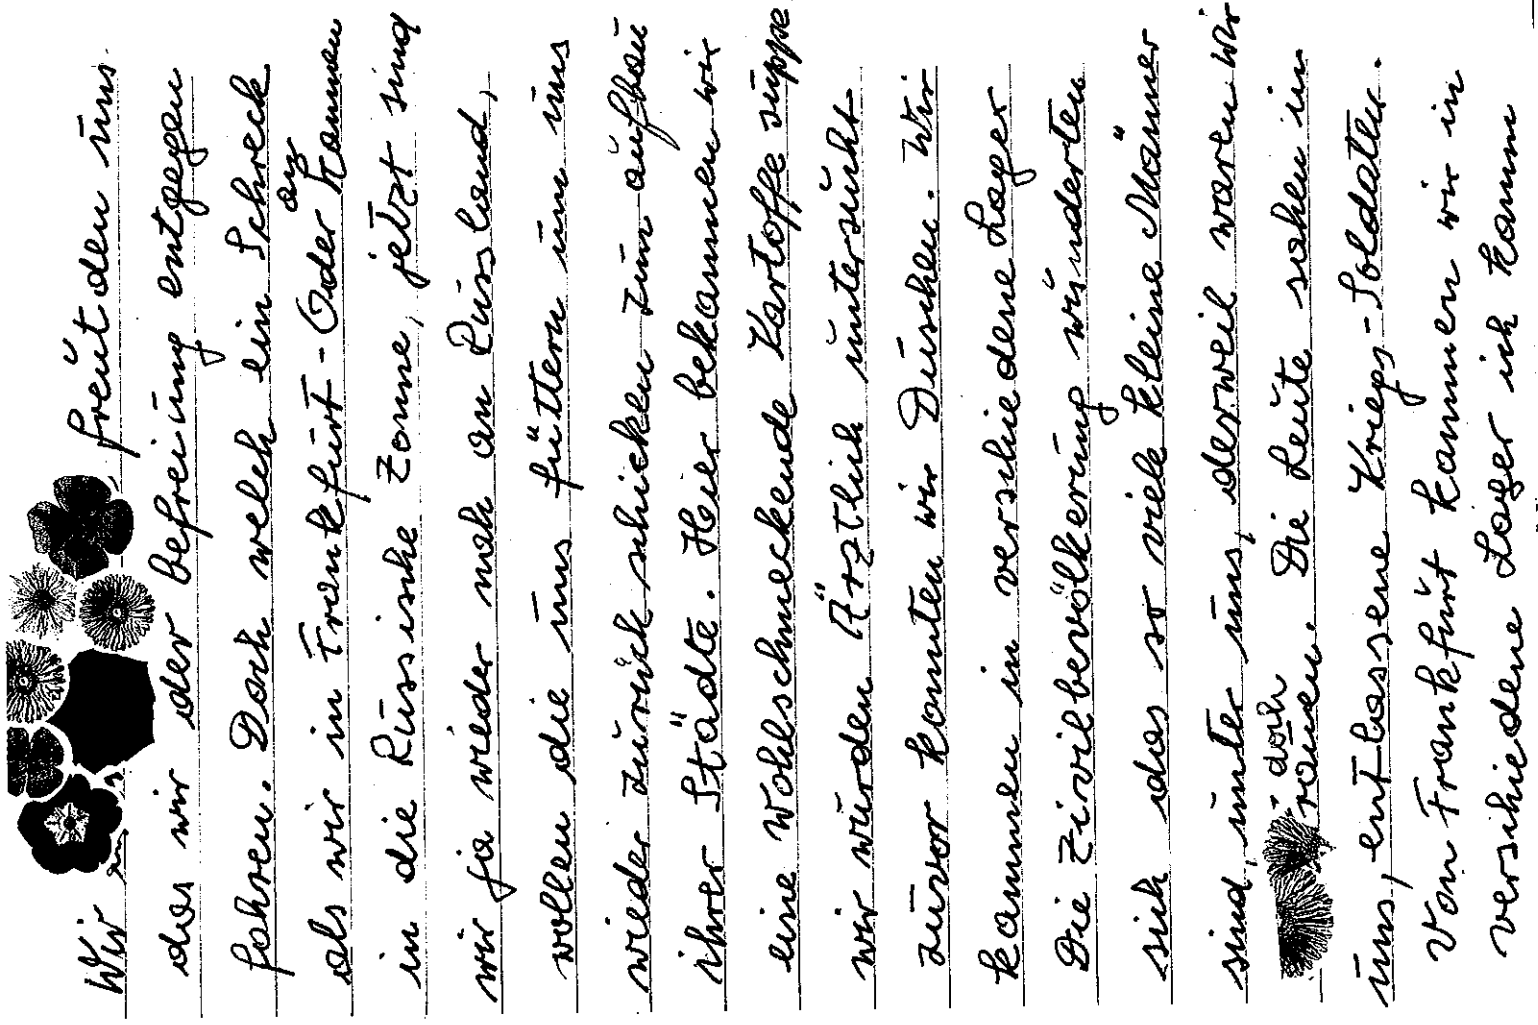 Wir freuten uns
das wir der befreiung entgegen
fahren. Doch welch ein Schreck
als wir in Frankfurt-Oder an kammen
in die Russische Zonne, jetzt sind
wir ja wieder nah an Russland,
wollen die uns füttern um uns
wieder zurück schicken zum aufbau
ihrer Städte. Hier bekammen wir
eine wohlschmeckende Kartoffe suppe
wir wurden Ärztlich untersucht
zuvor konnten wir Duschen. Wir
kammen in verschiedene Lager
Die Zivilbevölkerung wunderten
sich das so viele kleine Männer
sind unter uns, derweil waren wir
doch Frauen. Die Leute sahen in
uns, entlassene Kriegs-Soldaten.
Von Frankfurt kammen wir in
verschiedene Lager ich kamm